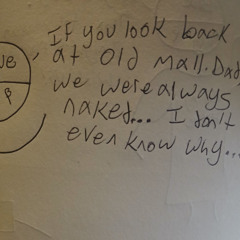 If you look back
at Old mall.Dad
we were always
naked... I don't
even know why...